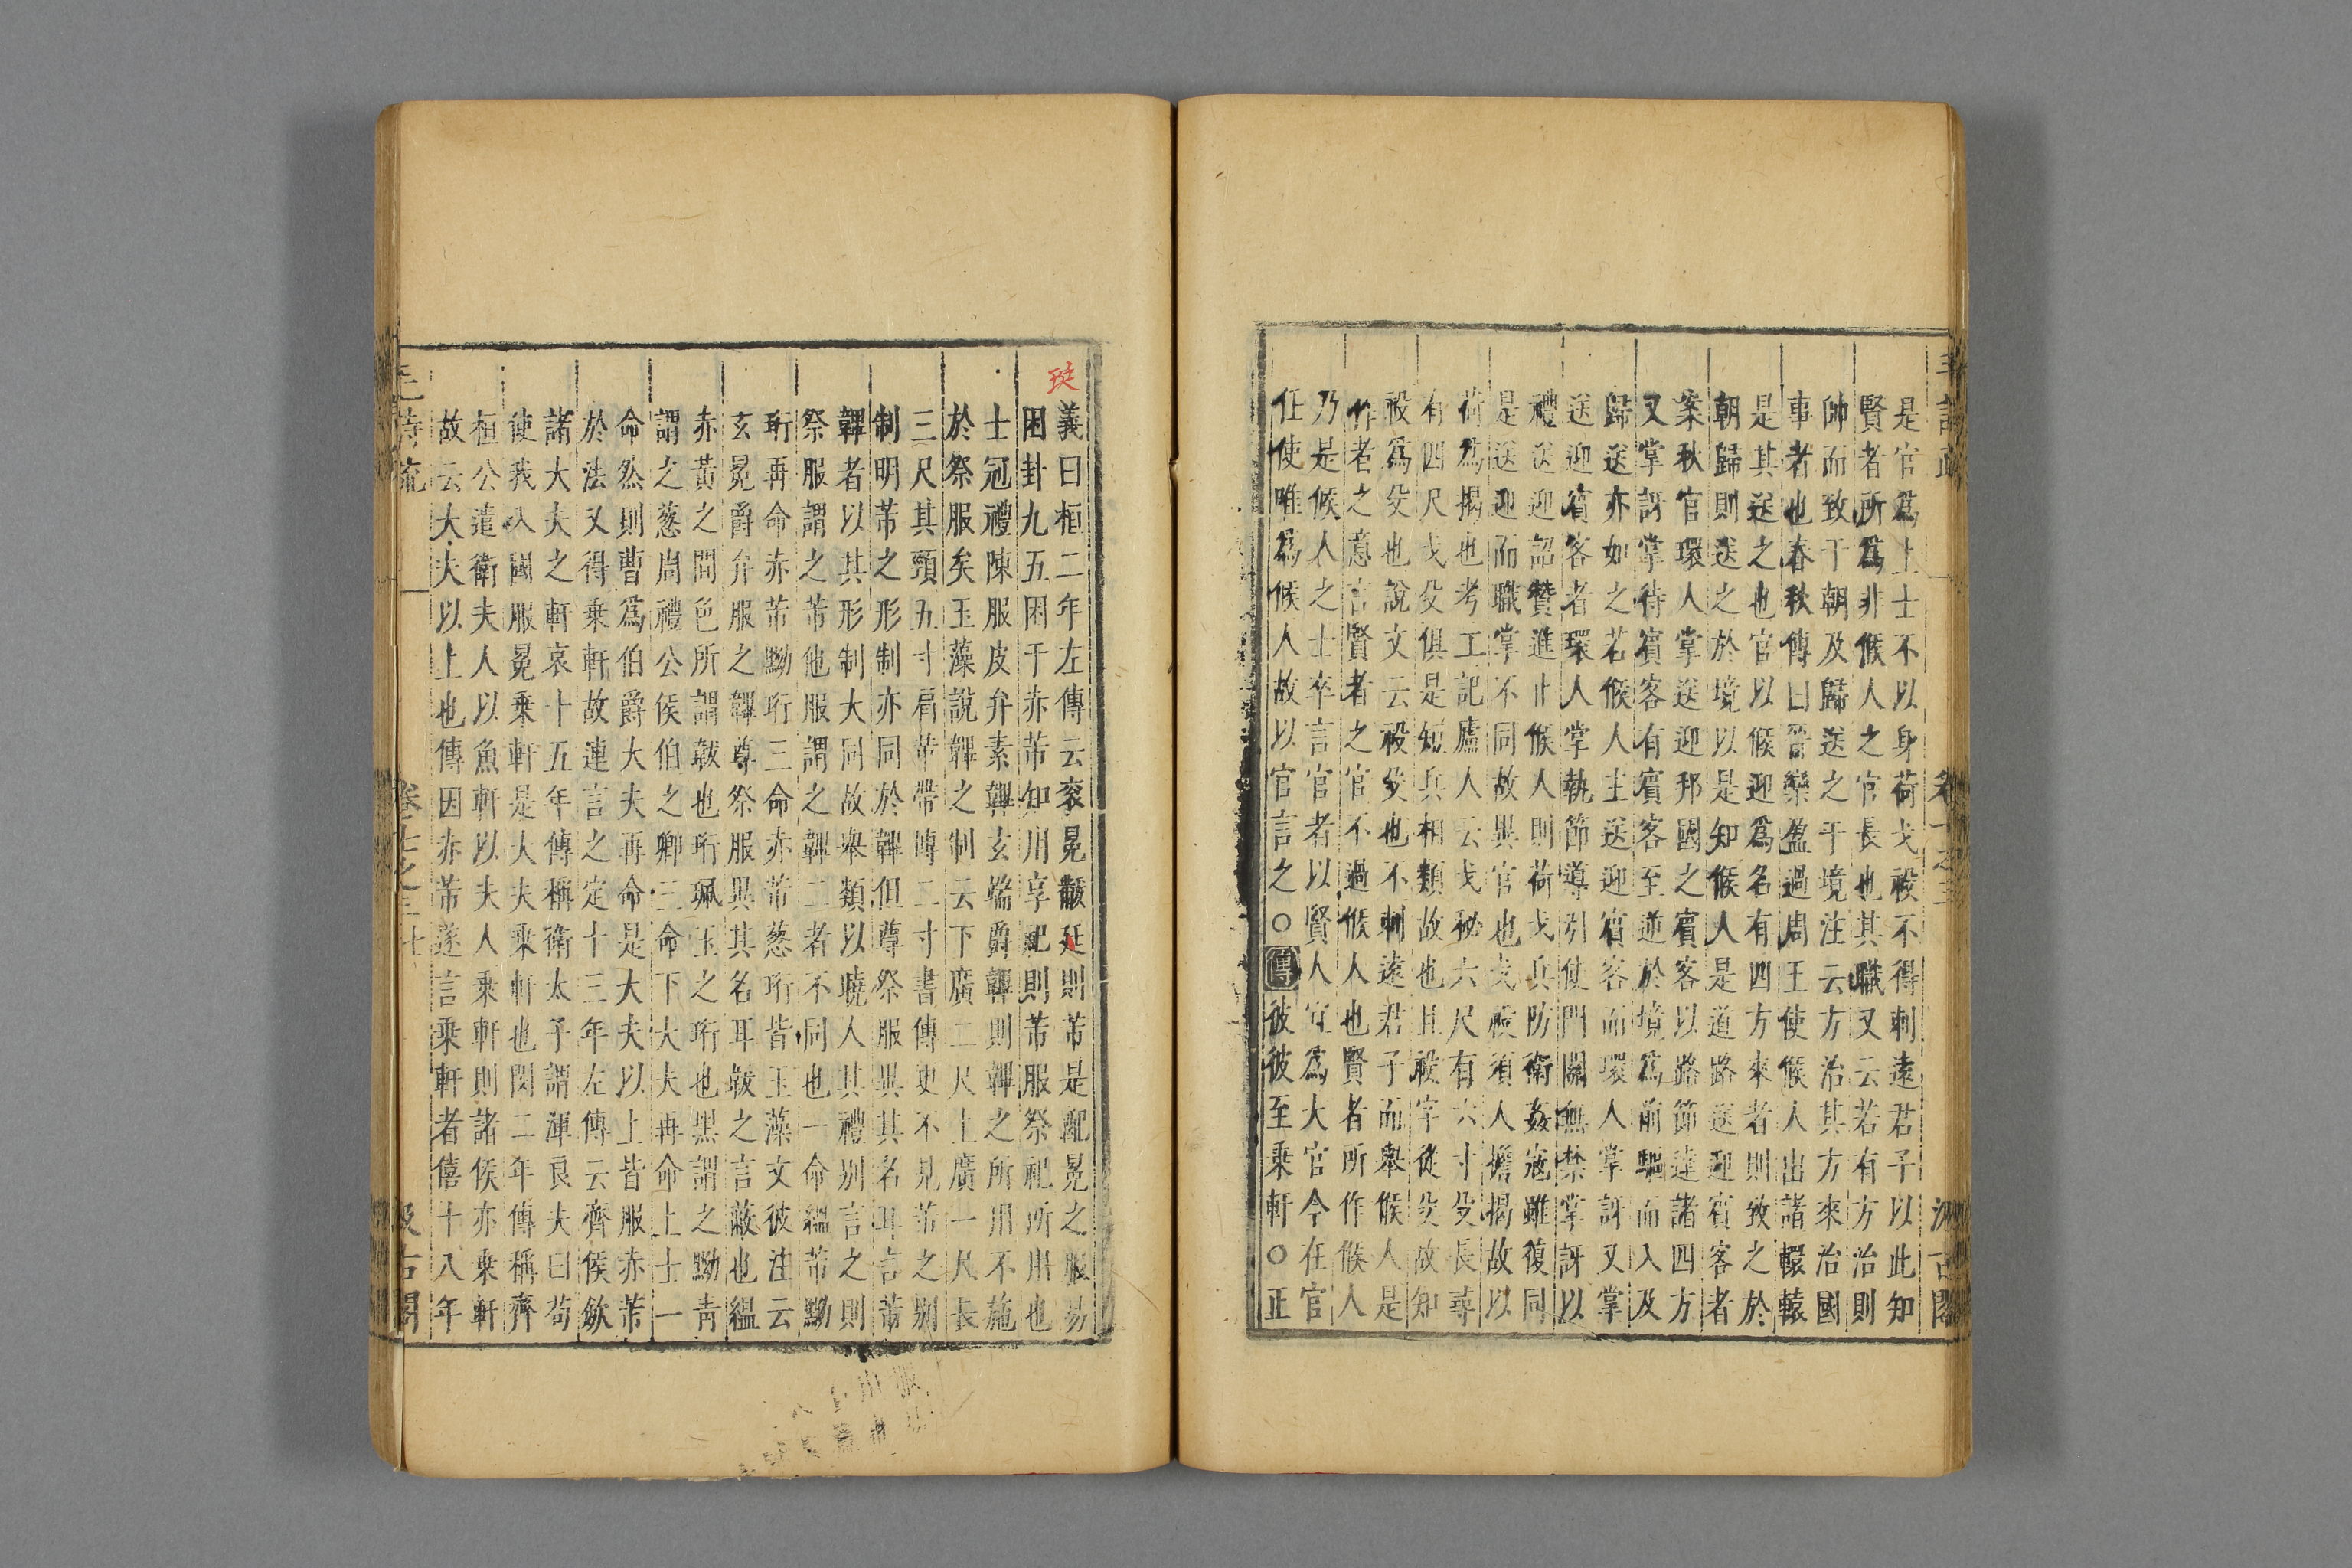 是官爲上士不以身荷戈祋不得刺遠君子以此知
賢者所爲非候人之官長也其職又云若有方治則
帥而致于朝及歸送之于境注云方治其方來治國
事者也春秋傳曰晉欒盈過周王使候人出諸轘轅
是其送之也官以候迎爲名有四方來者則致之於
朝歸則送之於境以是知候人是道路送迎賓客者
案秋官環人掌送迎邦國之賓客以路節達諸四方
又掌訝掌待賓客有賓客至逆於境爲前驅而入及
歸送亦如之若候人主送迎賓客而環人掌訝又掌
送迎賓客者環人掌執節導引使門關無禁掌訝以
禮送迎詔贊進止候人則荷戈兵防衛姦宼雖復同
是送迎而職掌不同故異官也戈祋須人擔揭故以
荷爲揭也考工記廬人云戈柲六尺有六寸殳長尋
有四尺戈殳俱是短兵相類故也且祋字從殳故知
祋爲殳也說文云祋殳也不刺遠君子而舉候人是
作者之意言賢者之官不過候人也賢者所作候人
乃是候人之士卒言官者以賢人宜爲大官今在官
任使唯爲候人故以官言之○傳彼彼至乘軒○正
珽
義曰桓二年左傳云衮冕黻廷則芾是配冕之服易
困卦九五困于赤芾知用享祀則芾服祭祀所用也
士冠禮陳服皮弁素韠玄端爵韠則韠之所用不施
於祭服矣玉藻說韠之制云下廣二尺上廣一尺長
三尺其頸五寸肩革帶博二寸書傳更不見芾之别
制明芾之形制亦同於韠但尊祭服異其名耳言芾
韠者以其形制大同故舉類以曉人其禮别言之則
祭服謂之芾他服謂之韠二者不同也一命緼芾黝
珩再命赤芾黝珩三命赤芾葱珩皆玉藻文彼注云
玄冕爵弁服之韠尊祭服異其名耳韍之言蔽也緼
赤黃之間色所謂韎也珩珮玉之珩也黑謂之黝靑
謂之葱周禮公侯伯之卿三命下大夫再命上士一
命然則曹爲伯爵大夫再命是大夫以上皆服赤芾
於法又得乘軒故連言之定十三年左傳云齊侯斂
諸大夫之軒哀十五年傳稱衛太子謂渾良夫曰苟
使我入國服冕乘軒是大夫乘軒也閔二年傳稱齊
桓公遺衛夫人以魚軒以夫人乘軒則諸侯亦乘軒
故云大夫以上也傳因赤芾遂言乘軒者僖十八年